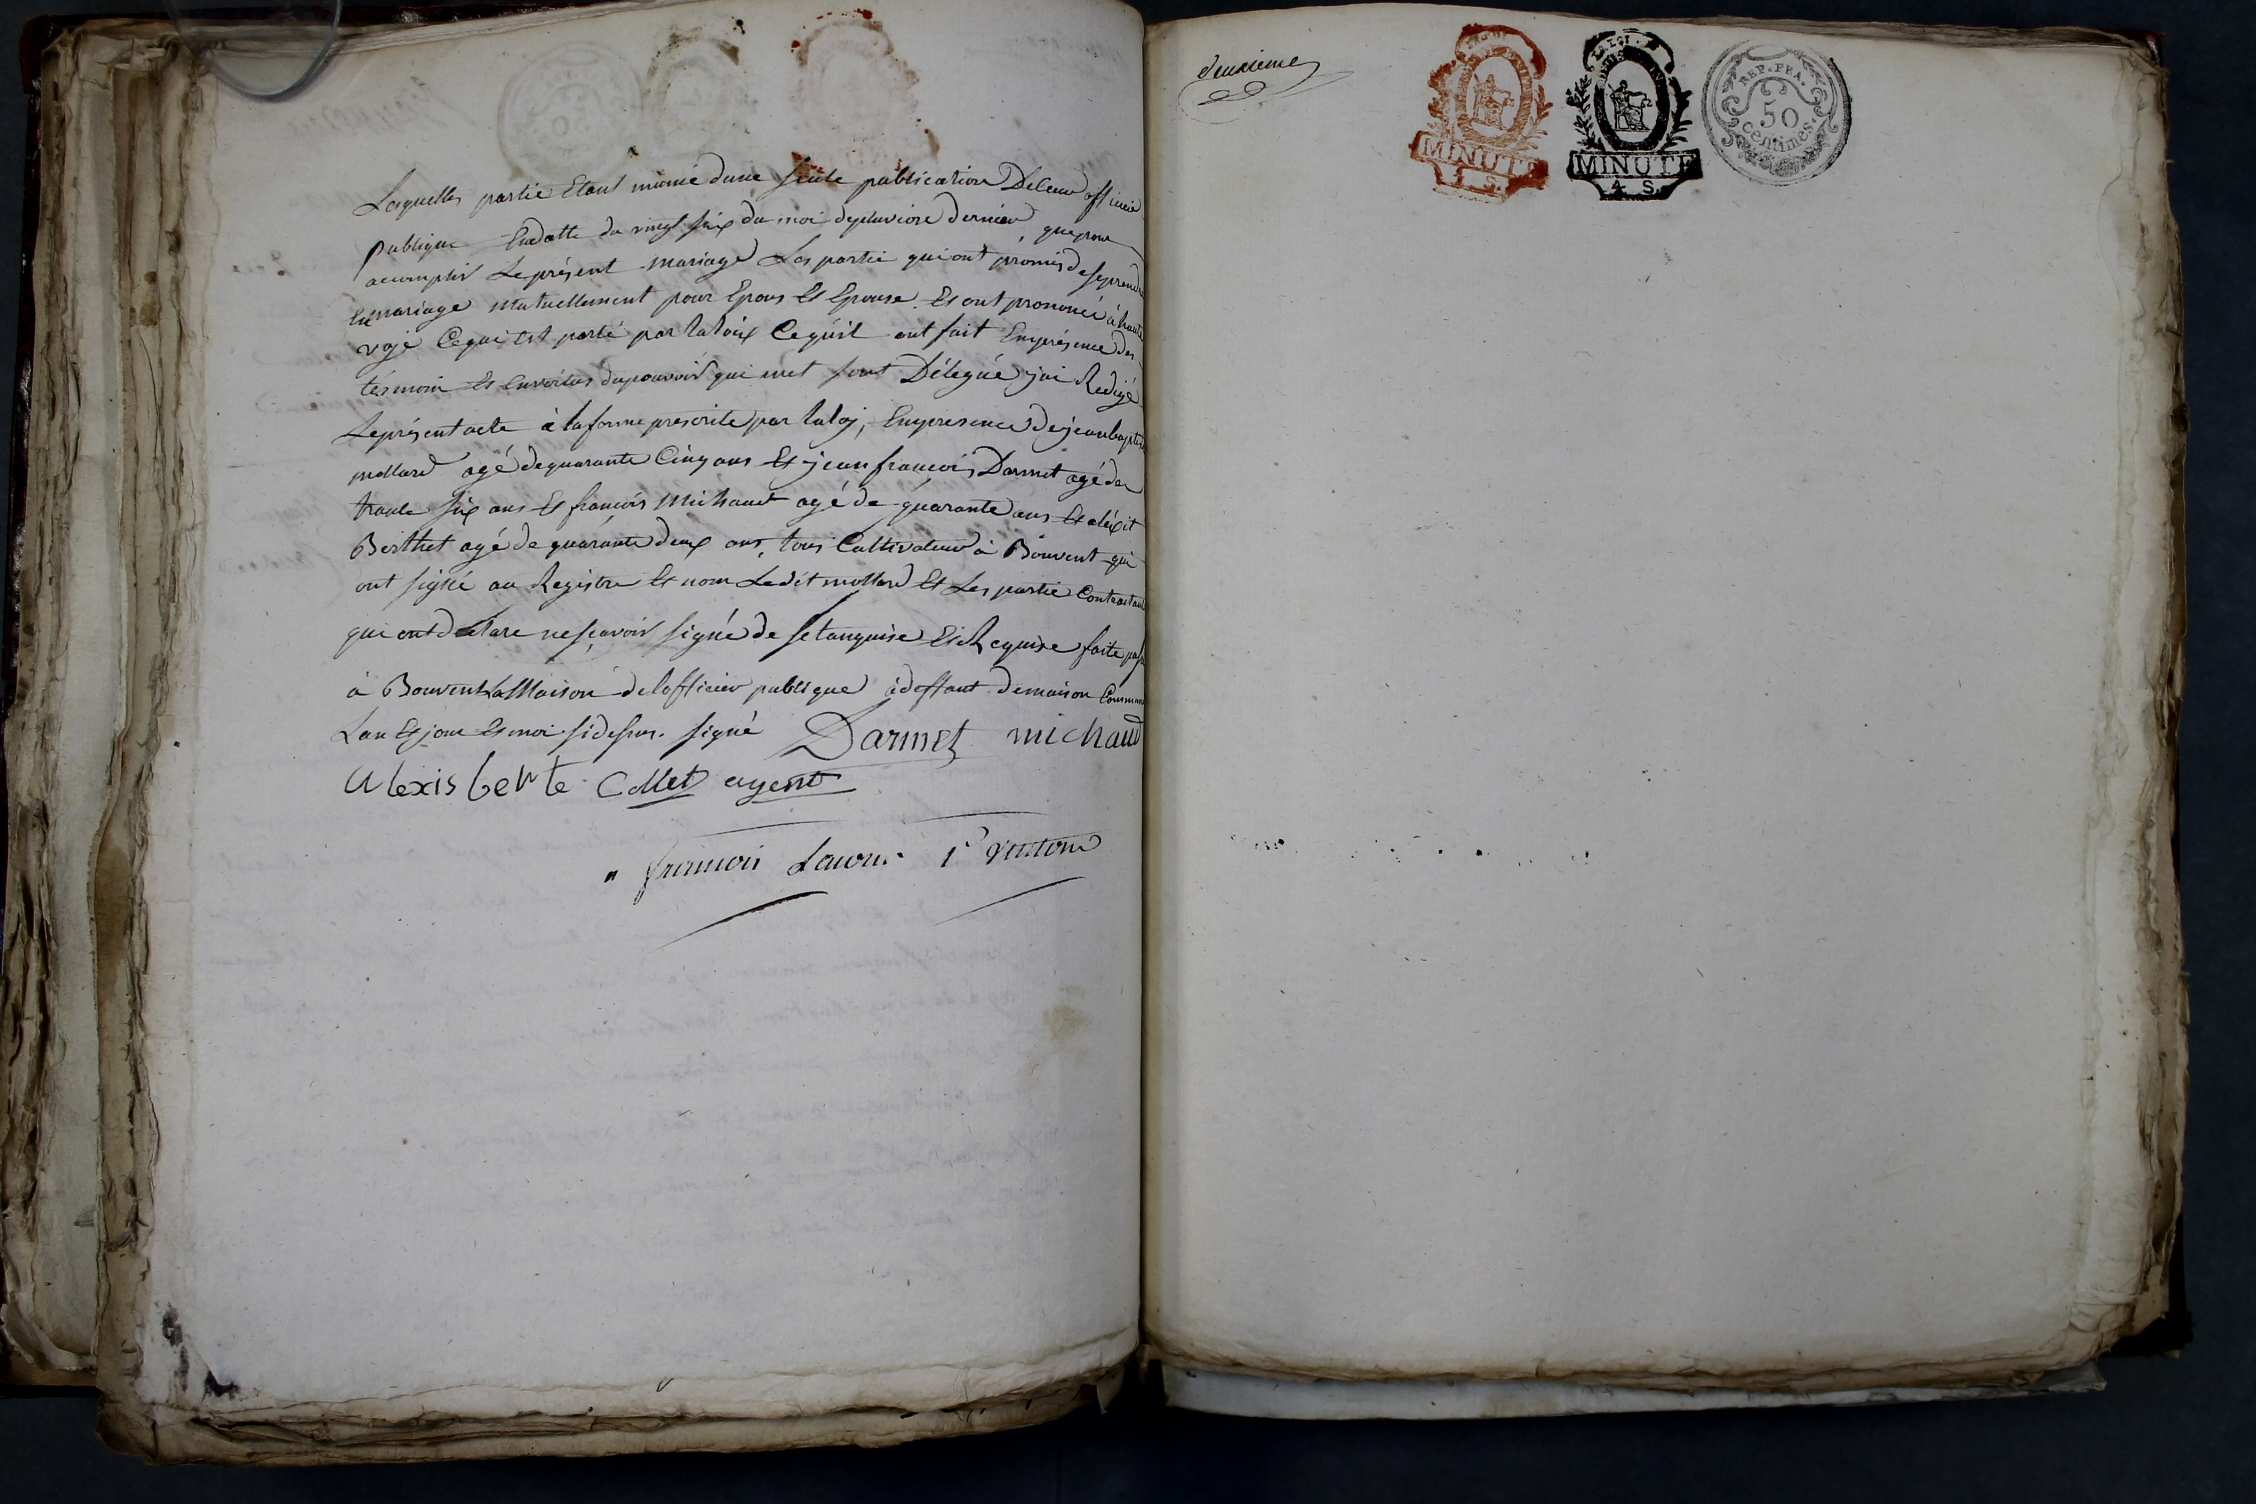 Lesquelles partie Etant munie dune seule publication De leur officie
publique Endatte du vingt six du moi depluviose dernier, que pour
accomplir Leprésent mariage Les partie qui ont promis de se prendre
En mariage mutuellement pour Epous Et Epouse. Et ont prononcé à haute
voye Cequi est porté par la loix Cequ'il ont fait Enprésence des
témoin Et Envertus dupouvoir qui met sont Délégué jai Redigé
Leprésent acte à la forme prescrite par la loy, Enpresence de jean baptiste
mollard agé dequarante Cinq ans Et jean françois Darmet agé de
trante six ans Et françois Michaud agé de quarante ans Et aléxit
Berthet agé de quarante deux ans, tous Cultivateur à Bouvent qui
ont signé au Registre Et nom Ledit mollard Et Les partie Contractante
qui ont déclare nesçavoir signé de Requise faite passé
à Bouvent La Maison delofficier publique à deffaut de maison Commune
Lan Et jour Et moi sidessus. signé Darmet michaud
Alexis berte Collet agent
françois
deuxieme
MINUTE
4 S.
MINUTE
4 S.
REP. FRA.
50
centimes.